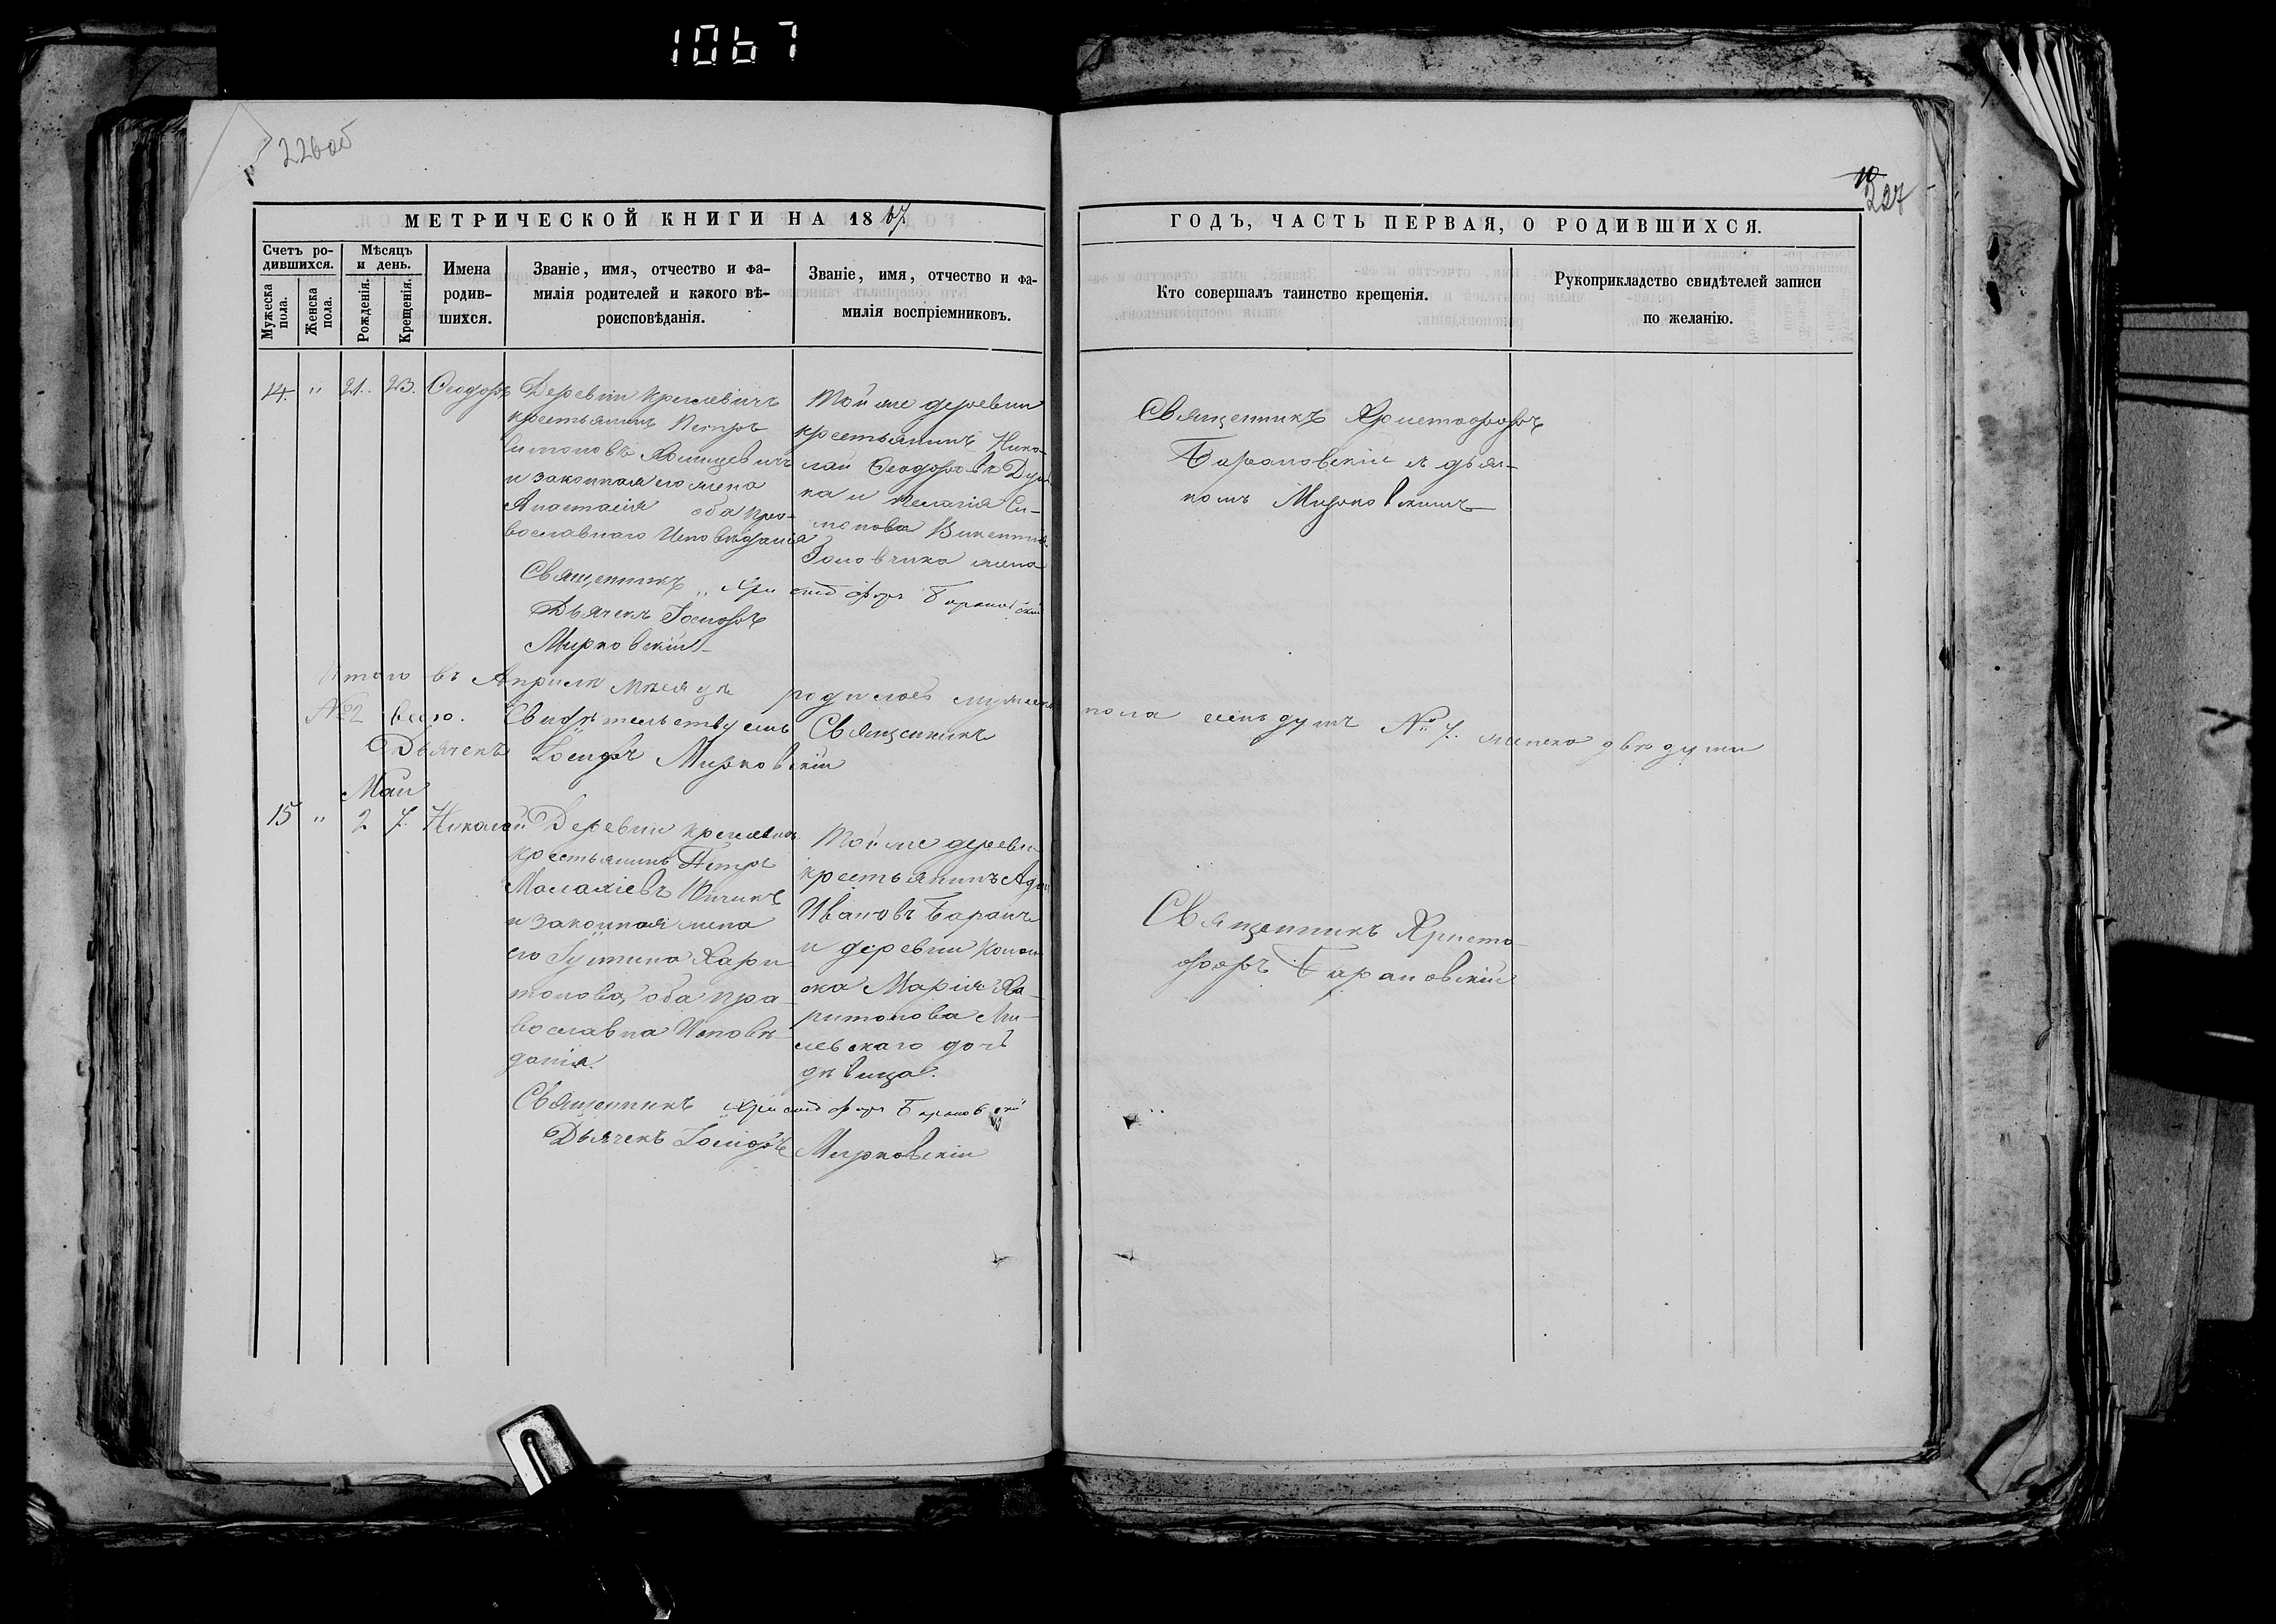 1067
226об
10
227
МЕТРИЧЕСКОЙ КНИГИ НА 1867
ГОДЪ, ЧАСТЬ ПЕРВАЯ, О РОДИВШИХСЯ.
Счетъ ро-
дившихся.
Мужеска пола.
Женска пола.
Мѣсяцъ
и день.
Рожденія.
Крещенія.
Имена
родив-
шихся.
Званіе, имя, отчество и фа-
милія родителей и какого вѣ-
роисповѣданія.
Званіе, имя, отчество и фа-
милія воспріемниковъ.
Кто совершалъ таинство крещенія.
Рукоприкладство свидѣтелей записи
по желанію.
14. " 21. 23. Ѳеодоръ
Деревни
крестьянинъ Петръ
и законная его жена
Анастасія оба пра-
вославнаго Исповѣданія
Священникъ Христофоръ Барановскій
Дьячекъ Іосифъ
Мирковскій
Той же деревни
крестьянинъ Нико-
лай Ѳеодоровъ
ка и Пелагія Си-
монова Викентія
Головчика жена
Священникъ Христофоръ
Барановскій съ дьяч-
комъ Мирковскимъ
Итого въ Апрелѣ мѣсяцѣ родилось мужеска
пола семь душъ № 7. женска двѣ души
№ 2 всего. Свидѣтельствуемъ Священникъ
Дьячекъ Іосифъ Мирковскій
Май
15 " 2 7. Николай
Деревни
крестьянинъ Петръ
Малахіевъ
и законная жена
его Іустина Хари-
тонова, оба пра-
вославна Исповѣ-
данія.
Священникъ Христофоръ Барановскій
Дьячекъ Іосифъ Мирковскій
Той же деревни
крестьянинъ
Ивановъ Баранъ
и деревни
Марія Ха-
ритонова Ми-
левскаго дочь
дѣвица.
Священникъ Христо-
форъ Барановскій